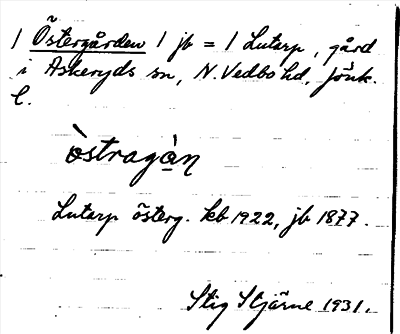 / Östergården / jb = / Lutarp, gård
i Askeryds sn, N. Vedbo hd, Jönk.
l.
östragạ̀n
Lutarp österg. kb 1922, jb 1877.
Stig Stjärne 1931.